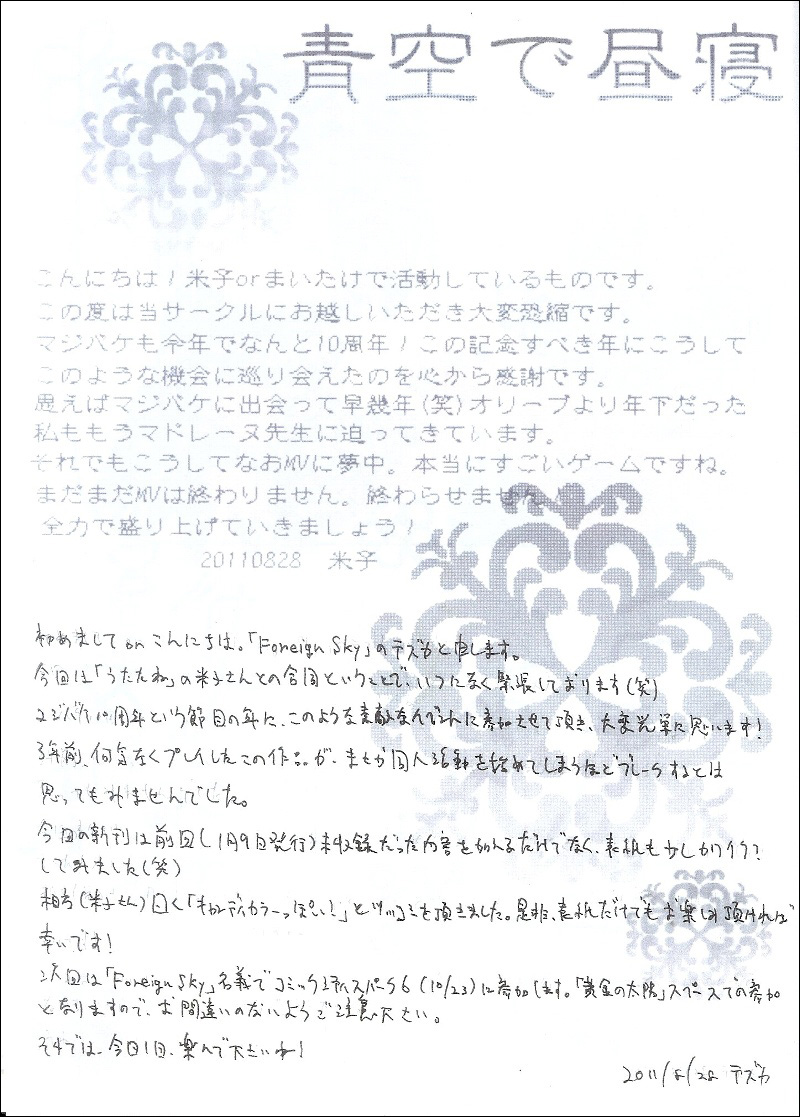 青空で昼寝
こんにちは！米子orまいたけで活動しているものです。
この度は当サークルにお越しいただき大変恐縮です。
マジバケも今年でなんと10周年！この記念すべき年にこうして
このような機会に巡り会えたのを心から感謝です。
思えばマジバケに出会って早幾年(笑)オリーブより年下だった
私ももうマドレーヌ先生に迫ってきています。
それでもこうしてなおMVに夢中。本当にすごいゲームですね。
まだまだMVは終わりません。終わらせません！
全力で盛り上げていきましょう！
20110828 米子
初めまして or こんにちは。「Foreign Sky」のテズカと申します。
今回は「うたたね」の米子さんとの合同ということで、いつになく緊張しております(笑)
マジバケ10周年という節目の年に、このような素敵なイベントに参加させて頂き、大変光栄に思います！
3年前、何気なくプレイしたこの作品が、まさか同人活動を始めてしまうほどブレークするとは
思ってもみませんでした。
今回の新刊は前回(1月9日発行)未収録だった内容を加えるだけでなく、表紙も少し
してみました(笑)
相方(米子さん)曰く「キャンディカラーっぽい！」とツッコミを頂きました。是非、表紙だけでもお楽しみ頂ければ
幸いです！
次回は「Foreign Sky」名義でコミックシティスパーク6 (10/23)に参加します。「黄金の太陽」スペースでの参加
となりますので、お間違いのないようご注意下さい。
それでは、今日1日、楽んで下さいね！
2011/8/28 テズカ